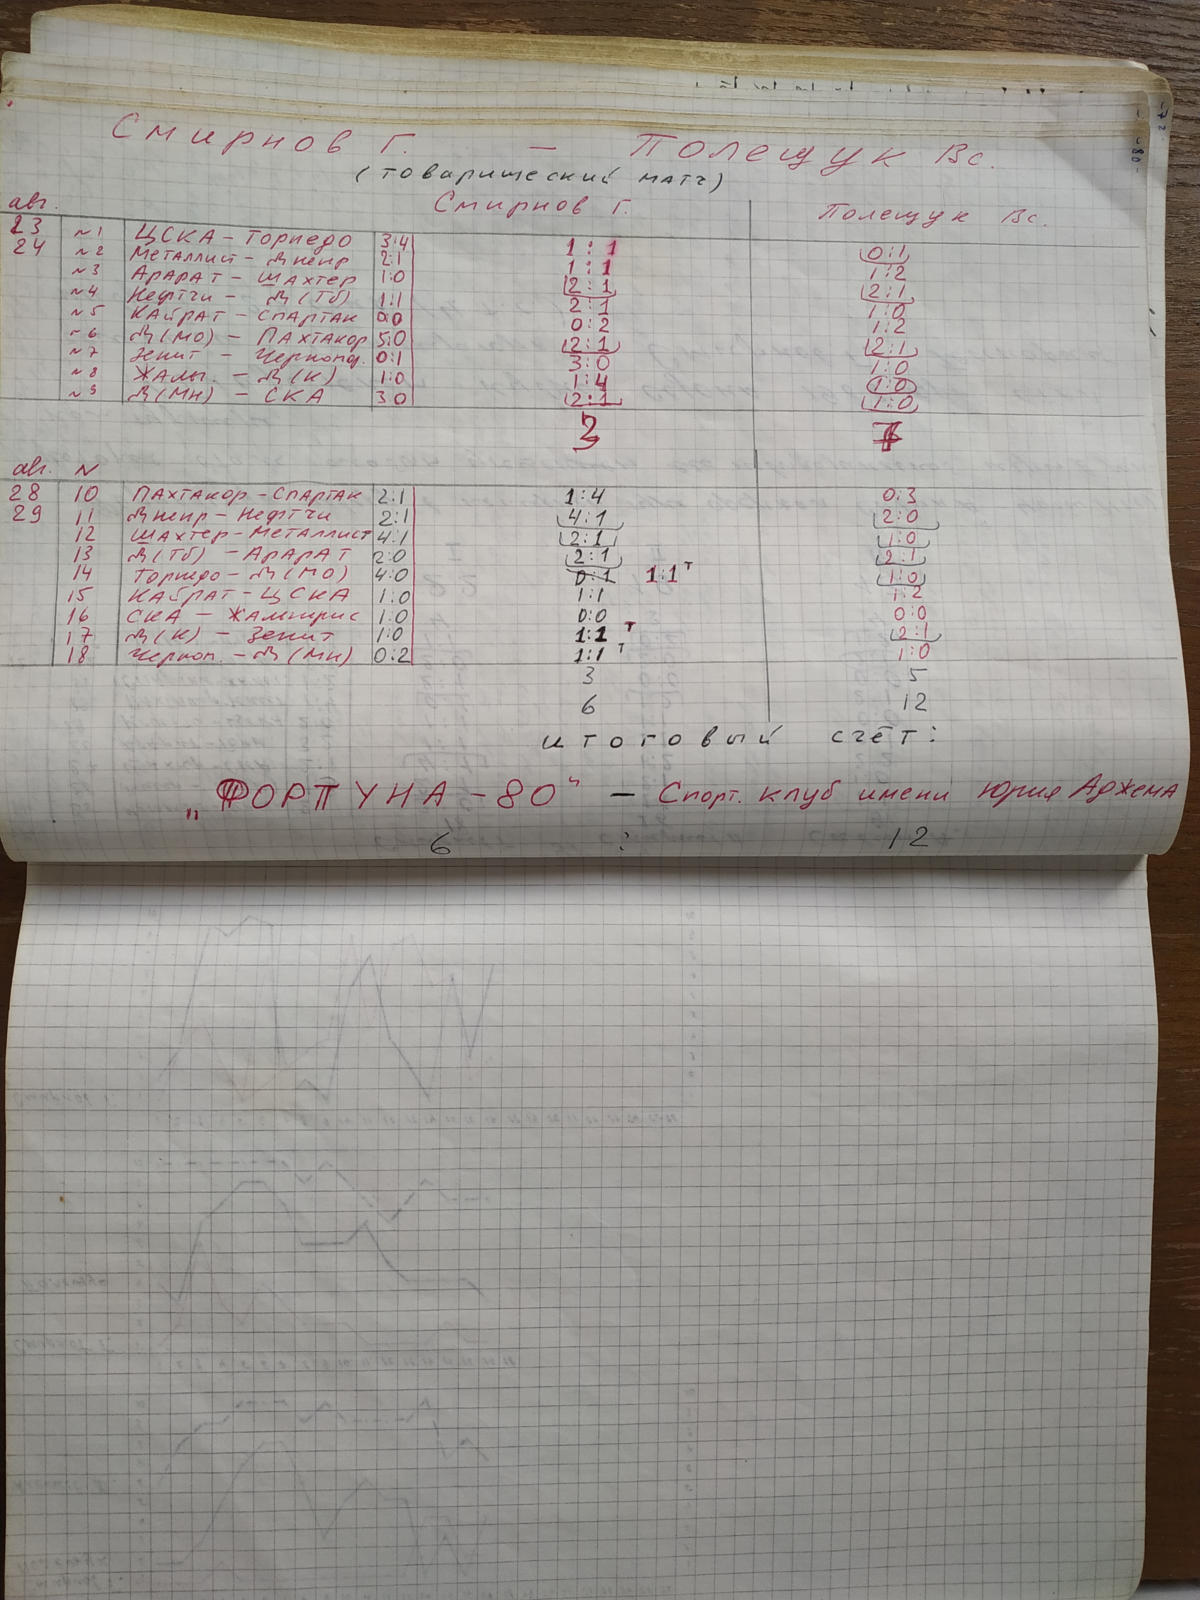 Смирнов Г. — Полещук Вс.
(товарищеский матч)
авг. Смирнов Г. Полещук Вс.
23 №1 ЦСКА – Торпедо 3:4 1:1 0:1
24 №2 Металлист – Днепр 2:1 1:1 1:2
№3 Арарат – Шахтер 1:0 2:1 2:1
№4 Нефтчи – Д(Тб) 1:1 2:1 1:0
№5 Кайрат – Спартак 0:0 0:2 1:2
№6 Д(МО) – Пахтакор 5:0 2:1 2:1
№7 Зенит – Черномор. 0:1 3:0 1:0
№8 Жальг. – Д(К) 1:0 1:4 1:0
№9 Д(Мн) – СКА 3:0 2:1 1:0
3 7
авг. N
28 10 Пахтакор – Спартак 2:1 1:4 0:3
29 11 Днепр – Нефтчи 2:1 4:1 2:0
12 Шахтер – Металлист 4:1 2:1 1:0
13 Д(Тб) – Арарат 2:0 2:1 2:1
14 Торпедо – Д(МО) 4:0 0:1 1:1 т 1:0
15 Кайрат – ЦСКА 1:0 1:1 1:2
16 СКА – Жальгирис 1:0 0:0 0:0
17 Д(К) – Зенит 1:0 1:1 т 2:1
18 Черном. – Д(Мн) 0:2 1:1 т 1:0
3 5
6 12
итоговый счёт:
„ФОРТУНА – 80" – Спорт. клуб имени Юрия Аджема
6 : 12